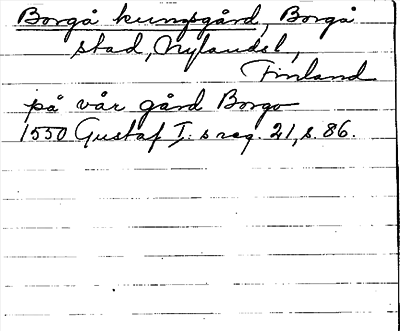 Borgå kungsgård, Borgå
stad, Nylandsl,
Finland
på vår gård Borgo
1550 Gustaf I. s reg. 21, s. 86.